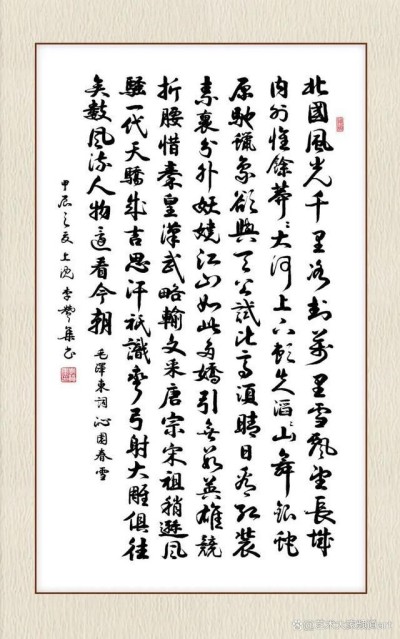 北國風光千里冰封萬里雪飄望長城
内外惟餘莽〻大河上下頓失滔〻山舞銀蛇
原馳蠟象欲與天公試比高須晴日看紅裝
素裹分外妖嬈江山如此多嬌引無數英雄競
折腰惜秦皇漢武略輸文采唐宗宋祖稍遜風
騷一代天驕成吉思汗祇識彎弓射大雕俱往
矣數風流人物還看今朝
毛澤東詞沁園春雪
甲辰之夏上李集書